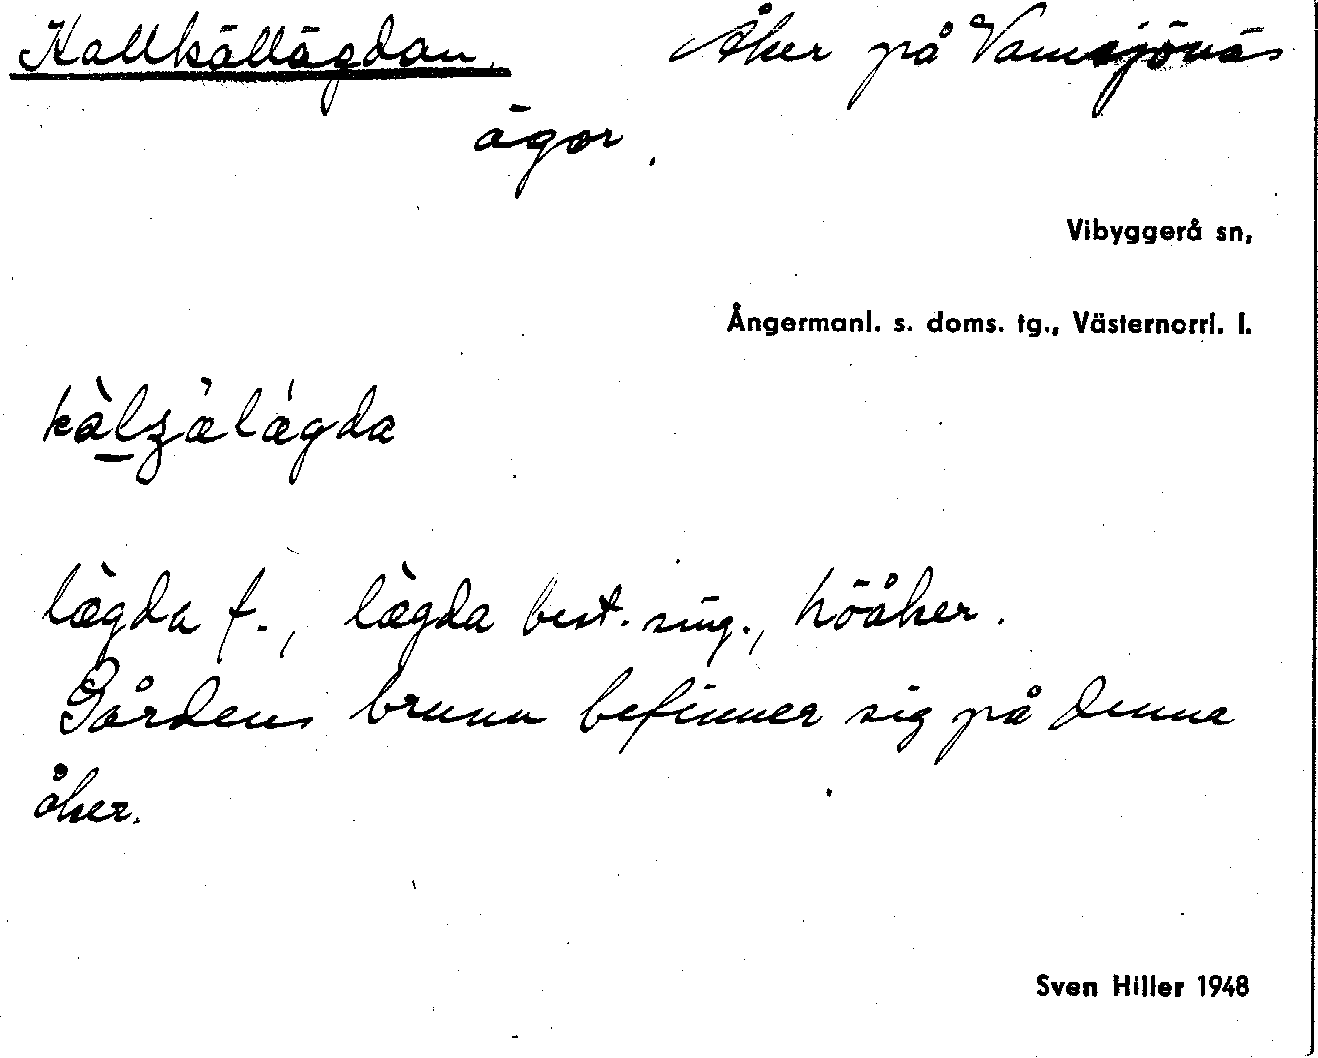 Kallkällägdan. Åker på Vamsjönäs
ägor.
Vibyggerå sn,
Ångermanl. s. doms. tg., Västernorrl. l.
kàlʒälǽgda
lægda f., lægda best. sing., höåker.
Gårdens brunn befinner sig på denna
åker.
Sven Hiller 1948